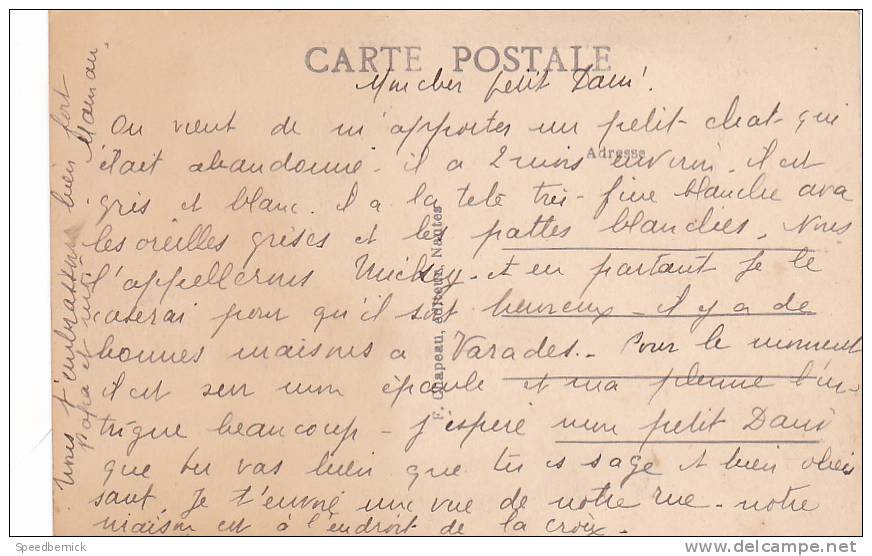 CARTE POSTALE
Mon cher petit Dani!
On vient de m'apporter un petit chat qui
Adresse
était abandonné - il a 2 mois environ. il est
gris et blanc. il a la tête très fine blanche avec
les oreilles grises et les pattes blanches. Nous
l'appellerons Mickey - et en partant je le
caserai pour qu'il soit heureux - il y a de
bonnes maisons à Varades. - Pour le moment
il est sur mon épaule et ma plume l'in-
trigue beaucoup - J'espère mon petit Dani
que tu vas bien que tu es sage et bien obéis
sant. Je t'envoie une vue de notre rue - notre
maison est à l'endroit de la croix. -
Nous t'embrassons bien fort
papa et moi Maman.
F. Chapeau, éditeur, Nantes
Speedbernick
www.delcampe.net